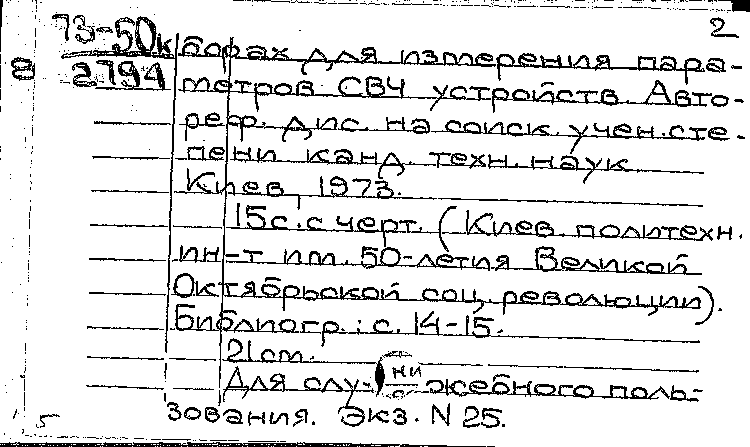 2
73-50к
8 2794
борах для измерения пара-
метров СВЧ устройств. Авто-
реф. дис. на соиск. учен. сте-
пени канд. техн. наук
Киев, 1973.
15с. с черт. (Киев. политехн.
ин-т им. 50-летия Великой
Октябрьской соц. революции).
Библиогр.: с. 14-15.
21 см.
Для слу- жебного поль-
зования. Экз. N 25.
5